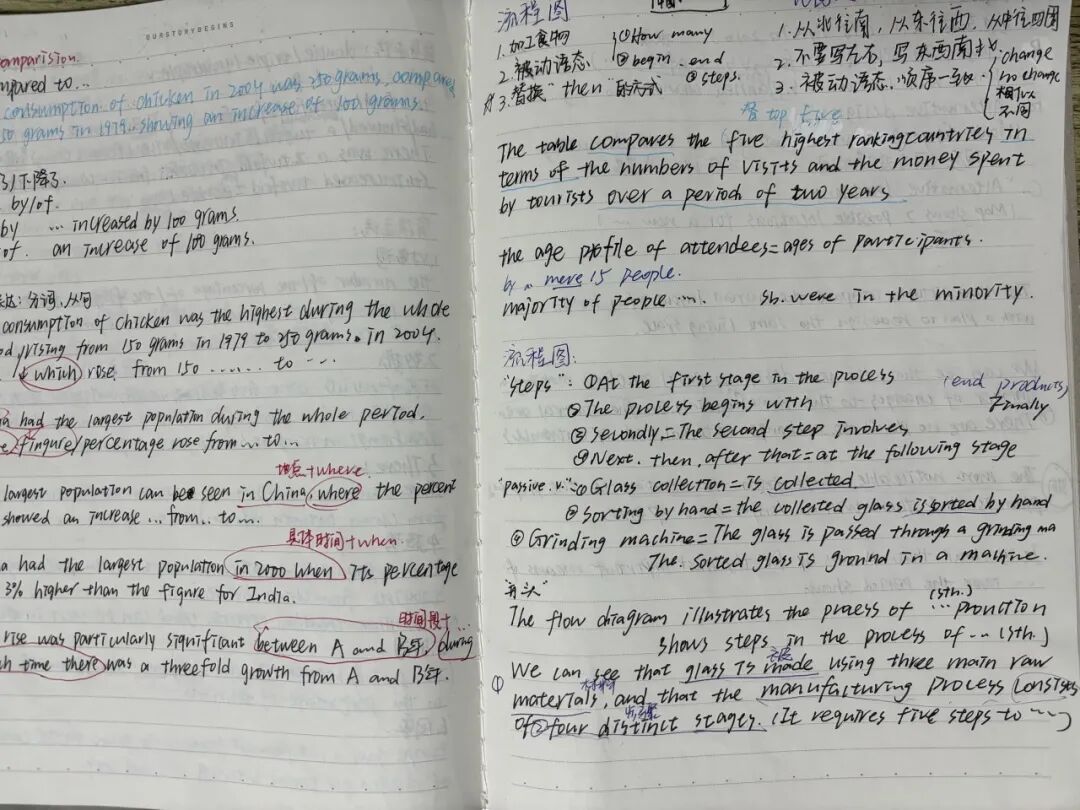 OURSTORYBEGINS
comparision.
mpared to...
consumption of chicken in 2004 was 250 grams, compared
50 grams in 1979, showing an increase of 100 grams.
了/下降了.
by/of.
by ... increased by 100 grams.
of. an increase of 100 grams.
达: 分词, 从句
consumption of chicken was the highest during the whole
od, rising from 150 grams in 1979 to 250 grams. in 2004.
which rose from 150 ...... to ...
a had the largest population during the whole period.
fingure/percentage rose from... to...
地点+where.
largest population can be seen in China, where the percent
showed an increase... from.. to...
具体时间+when.
a had the largest population in 2000 when its percentage
3% higher than the figure for India.
时间段+...
rise was particularly significant between A and B年, during
ch time there was a threefold growth from A and B年.
流程图
1. 加工食物
2. 被动语态
3. 替换 "then" 的方式
① How many
② begin. end
③ steps.
1. 从北往南, 从东往西, 从中往四周
2. 不要写左右, 写东西南北
3. 被动语态. 顺序一致
change
no change
相似
不同
top five
The table compares the five highest ranking countries in
terms of the numbers of visits and the money spent
by tourists over a period of two years
the age profile of attendees = ages of participants.
by a mere 15 people.
majority of people .... sb. were in the minority.
流程图:
"steps": ① At the first stage in the process
② The process begins with
(end products)
Finally
③ Secondly = The second step involves
④ Next. then, after that = at the following stage
"passive. v.": ① Glass collection = is collected
② Sorting by hand = the collected glass is sorted by hand
④ Grinding machine = The glass is passed through a grinding ma
The sorted glass is ground in a machine.
"开头"
(sth.)
The flow diagram illustrates the praess of ... pronction
shows steps in the process of ... (sth.)
① We can see that glass is made using three main raw
被
materials, and that the manufacturing process consists
材料
of ② four distinct stages. (It requires five steps to ...)